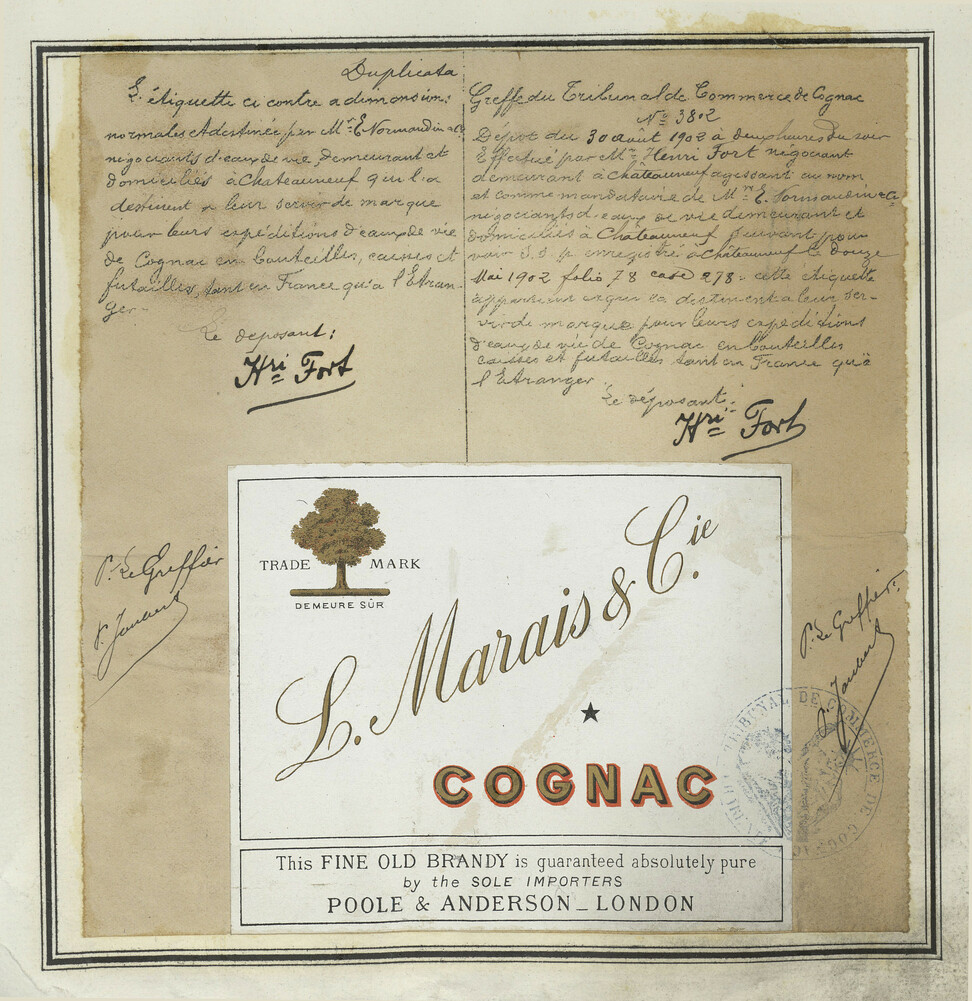 Duplicata
L'étiquette ci contre a dimensions
normales et destinée par Mr. E. Normandin & Cie
négociants d'eaux de vie, demeurant et
domiciliés à Chateauneuf qui la
destinent a leur servir de marque
pour leurs expéditions d'eaux de vie
de Cognac en bouteilles, caisses et
futailles, tant en France qu'a l'Etran-
ger.-
Le deposant:
Hri Fort
Greffe du Tribunal de Commerce de Cognac
No 3802
Dépot du 30 août 1902 à deux heures du soir
Effectué par Mr. Henri Fort négociant
demeurant à Châteauneuf agissant au nom
et comme mandataire de Mr. E. Normandin & Cie
négociants d'eaux de vie demeurant et
domiciliés à Châteauneuf suivant pouvoir
S. S. P. enregistré à Châteauneuf le douze
Mai 1902 folio 78 case 278.- cette étiquette
appartient et qui la destinent a leur ser-
vir de marque pour leurs expéditions
d'eaux de vie de Cognac en bouteilles
caisses et futailles tant en France qu'à
l'Etranger.
Le déposant:
Hri Fort
P. Le Greffier
P. Le Greffier:
TRADE MARK
DEMEURE SÛR
L. Marais & Cie.
COGNAC
TRIBUNAL DE COMMERCE DE COGNAC
This FINE OLD BRANDY is guaranteed absolutely pure
by the SOLE IMPORTERS
POOLE & ANDERSON_LONDON